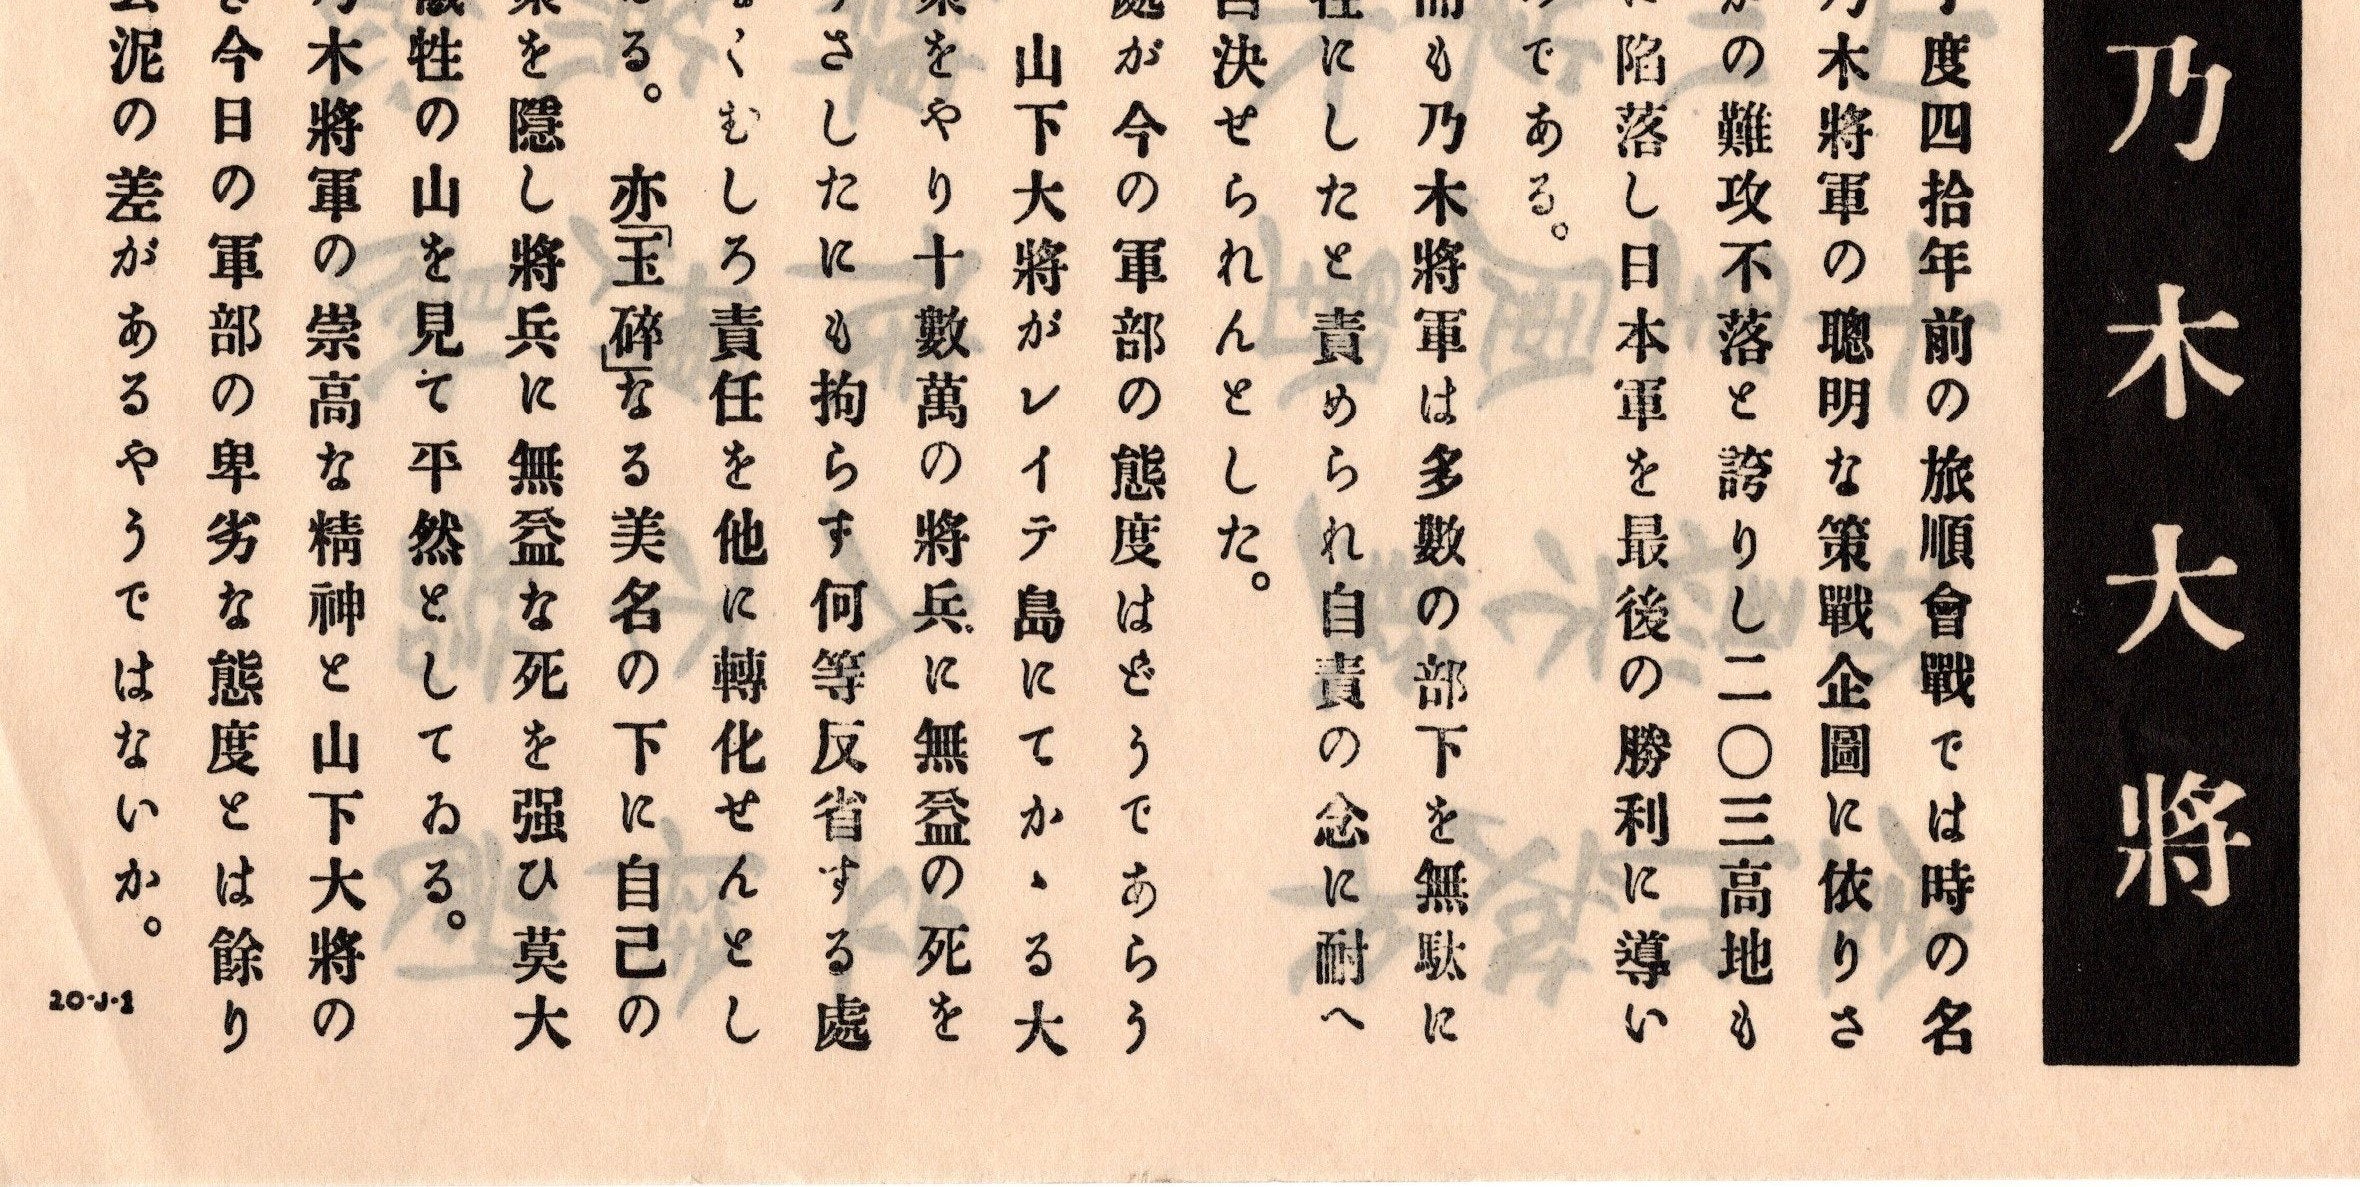 乃木大將
度四拾年前の旅順會戰では時の名
乃木將軍の聰明な策戰企圖に依りさ
の難攻不落と誇りし二〇三高地も
に陷落し日本軍を最後の勝利に導い
のである。
而も乃木將軍は多數の部下を無駄に
にしたと責められ自責の念に耐へ
決せられんとした。
處が今の軍部の態度はどうであらう
山下大將がレイテ島にてかゝる大
をやり十數萬の將兵に無益の死を
さしたにも拘らず何等反省する處
くむしろ責任を他に轉化せんとし
る。亦「玉碎」なる美名の下に自己の
を隱し將兵に無益な死を强ひ莫大
犧牲の山を見て平然としてゐる。
乃木將軍の崇高な精神と山下大將の
今日の軍部の卑劣な態度とは餘り
泥の差があるやうではないか。
20-J-1